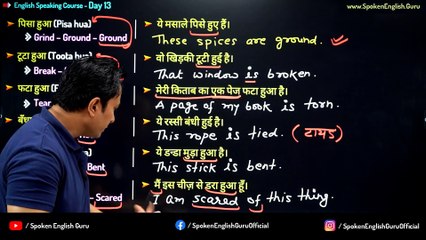 English Speaking Course - Day 13
www.SpokenEnglish.Guru
पिसा हुआ (Pisa hua)
Grind – Ground – Ground
टूटा हुआ (Toota hua)
Break –
फटा हुआ
Tear
Bent
Scared
ये मसाले पिसे हुए हैं।
These spices are ground.
वो खिड़की टूटी हुई है।
That window is broken.
मेरी किताब का एक पेज फटा हुआ है।
A page of my book is torn.
ये रस्सी बंधी हुई है।
This rope is tied. (टायड)
ये डन्डा मुड़ा हुआ है।
This stick is bent.
मैं इस चीज़ से डरा हुआ हूँ।
I am scared of this thing.
Spoken English Guru
SpokenEnglishGuruOfficial
SpokenEnglishGuruOfficial